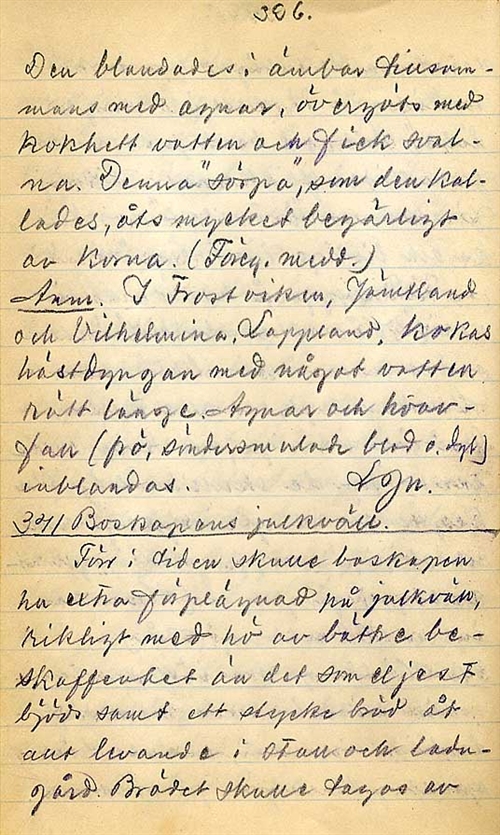 306.
Den blandades i ämbar tillsam-
mans med agnar, övergöts med
kokhett vatten och fick sval-
na. Denna "sörpa", som den kal-
lades, åts mycket begärligt
av korna. (Föreg. medd.)
Anm. I Frostviken, Jämtland
och Vilhelmina, Lappland, kokas
hästdyngan med något vatten
rätt länge. Agnar och
(frö, söndersmulade blad o. dyl.)
inblandas.
341 Boskapens julkväll.
Förr i tiden skulle boskapen
ha extra förplägnad på julkväll,
rikligt med hö av bättre be-
skaffenhet än det som eljest
bjöds samt ett stycke bröd åt
allt levande i stall och ladu-
gård. Brödet skulle tagas av